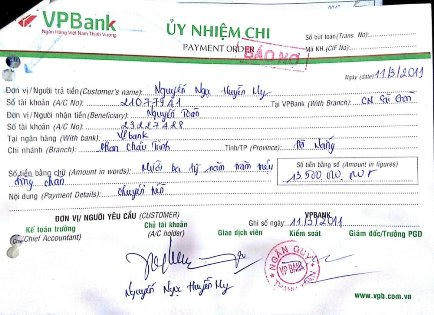 VPBank
Ngân Hàng Việt Nam Thịnh Vượng
ỦY NHIỆM CHI
PAYMENT ORDER
BÁO NỢ
Số bút toán(Trans. No)
Mã KH.(CIF No)
Ngày (date) 11/3/2011
Đơn vị/Người trả tiền(Customer's name): Nguyễn Ngọc Huyền My
Số tài khoản (A/C No): 21077941 Tại VPBank (With Branch): CN Sài Gòn
Đơn vị/Người nhận tiền (Beneficiary): Nguyễn Toàn
Số tài khoản (A/C No): 23227428
Tại ngân hàng (With bank): VPbank
Chi nhánh (Branch): Phan Châu Trinh Tỉnh/TP (Province): Đà Nẵng
Số tiền bằng chữ (Amount in words): Mười ba tỷ năm trăm
đồng chẵn
Số tiền bằng số (Amount in figures)
Nội dung (Payment Details): chuyển tiền
ĐƠN VỊ/ NGƯỜI YÊU CẦU (CUSTOMER)
Kế toán trưởng
Chief Accountant)
Chủ tài khoản
(A/C holder)
Ghi sổ ngày: 11/3/2011
VPBANK
Giao dịch viên Kiểm soát Giám đốc/Trưởng PGD
NGÂN QUỸ
VP BANK
Nguyễn Ngọc Huyền My
www.vpb.com.vn